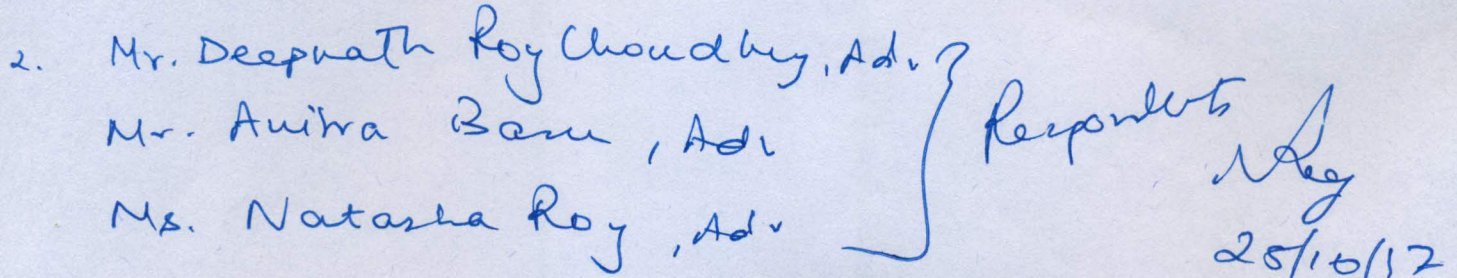 2. Mr. Deepnath Roy Choudhury, Adv.
Mr. Anirra Basu, Adv
Ms. Natasha Roy, Adv
Respondents
NRoy
25/10/17